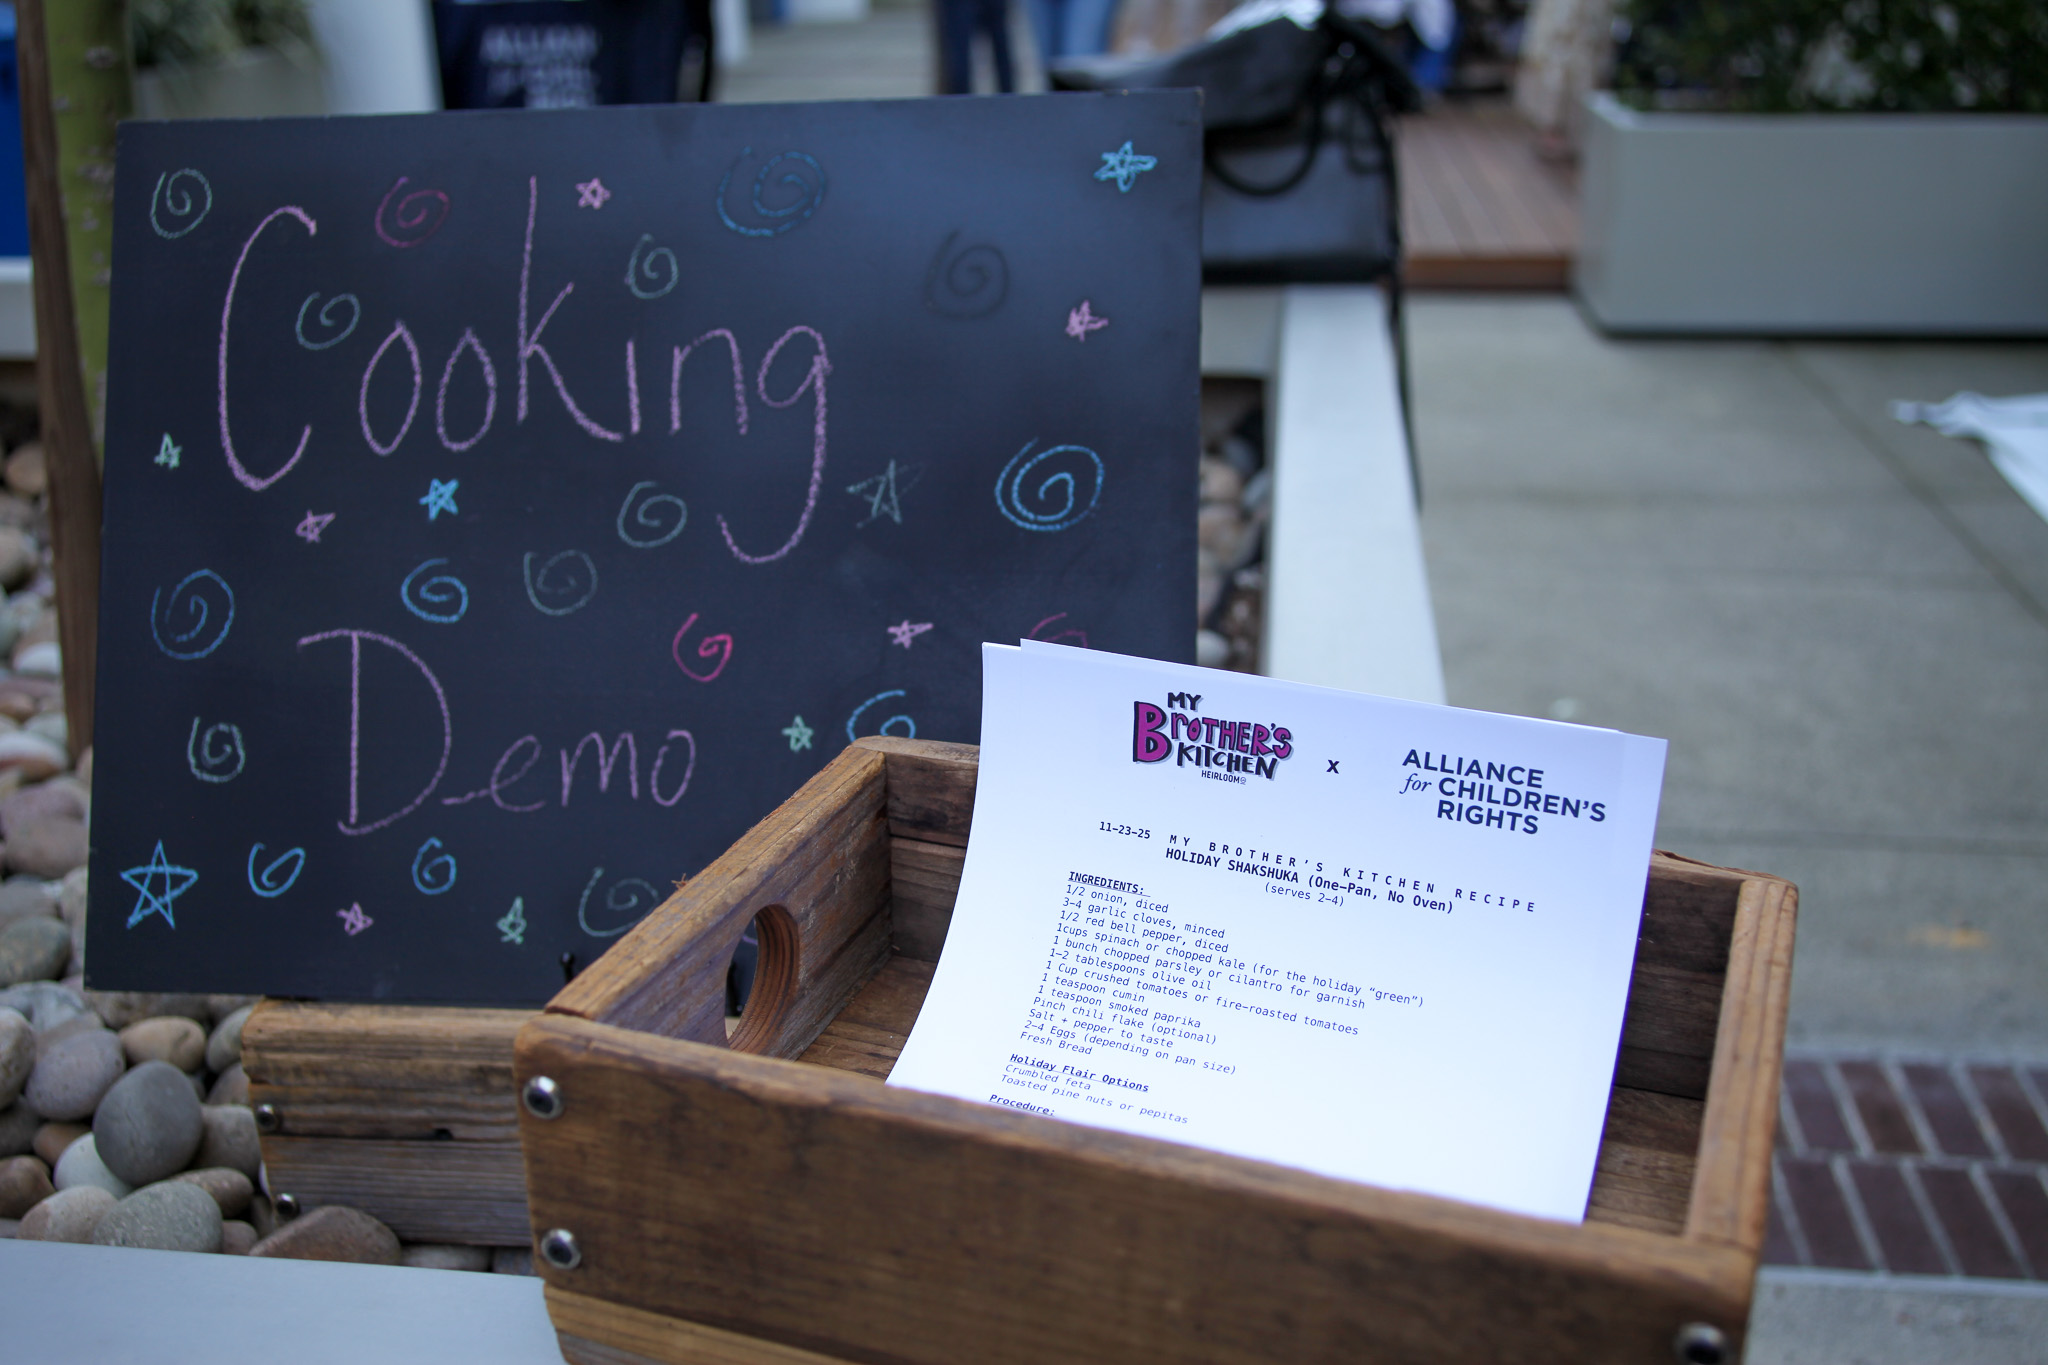 Cooking
Demo
MY
BROTHER'S
KITCHEN
HEIRLOOM
x
ALLIANCE
for CHILDREN'S
RIGHTS
11-23-25 MY BROTHER'S KITCHEN RECIPE
HOLIDAY SHAKSHUKA (One-Pan, No Oven)
(serves 2-4)
INGREDIENTS:
1/2 onion, diced
3-4 garlic cloves, minced
1/2 red bell pepper, diced
1cups spinach or chopped kale (for the holiday “green”)
1 bunch chopped parsley or cilantro for garnish
1-2 tablespoons olive oil
1 Cup crushed tomatoes or fire-roasted tomatoes
1 teaspoon cumin
1 teaspoon smoked paprika
Pinch chili flake (optional)
Salt + pepper to taste
2-4 Eggs (depending on pan size)
Fresh Bread
Holiday Flair Options
Crumbled feta
Toasted pine nuts or pepitas
Procedure: